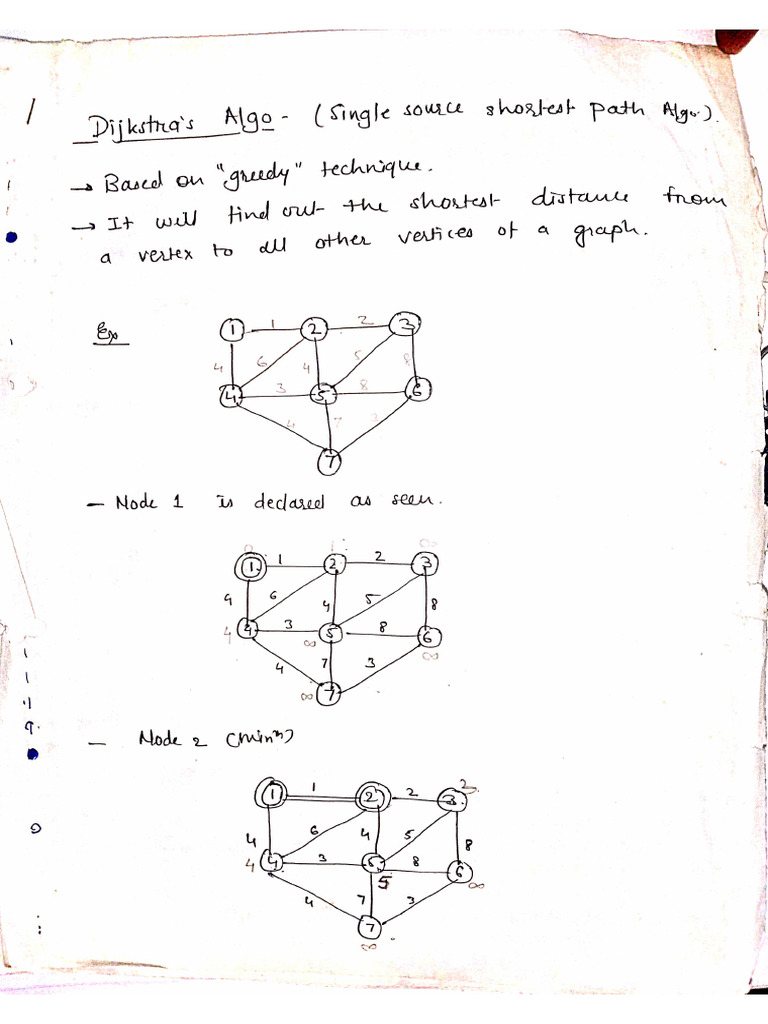 Dijkstra's Algo - (Single source shortest path Algo).
→ Based on "greedy" technique.
→ It will find out the shortest distance from
a vertex to all other vertices of a graph.
Ex
1 1 2 2 3
4 6 4 5 8
4 3 5 8 6
4 7 3
7
- Node 1 is declared as seen.
0 1 ∞
1 1 2 2 3
4 6 4 5 8
4 4 3 5 8 6
∞ ∞
4 7 3
∞ 7
- Node 2 (minm)
3
1 1 2 2 3
4 6 4 5 8
4 4 3 5 8 6
5 ∞
4 7 3
7
∞